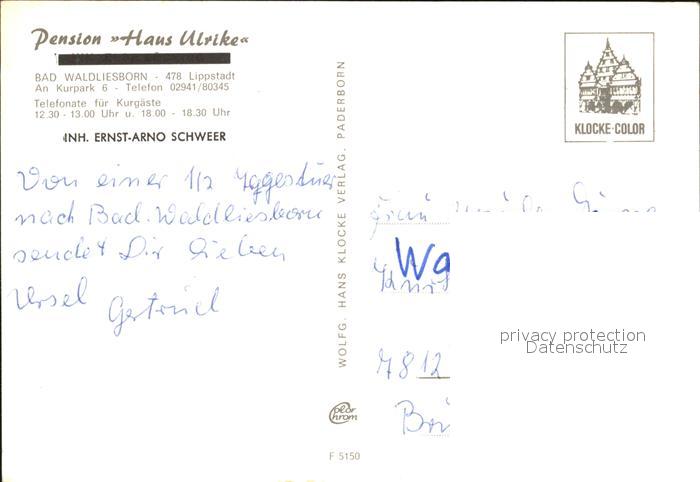 Pension »Haus Ulrike«
BAD WALDLIESBORN - 478 Lippstadt
An Kurpark 6 - Telefon 02941/80345
Telefonate für Kurgäste
12.30 - 13.00 Uhr u. 18.00 - 18.30 Uhr
INH. ERNST-ARNO SCHWEER
Von einer 1/2
nach Bad. Waldliesborn
sendet Dir lieben
Ursel Gertrud
WOLFG. HANS KLOCKE VERLAG, PADERBORN
color
chrom
F 5150
KLOCKE-COLOR
Frau
7812
privacy protection
Datenschutz